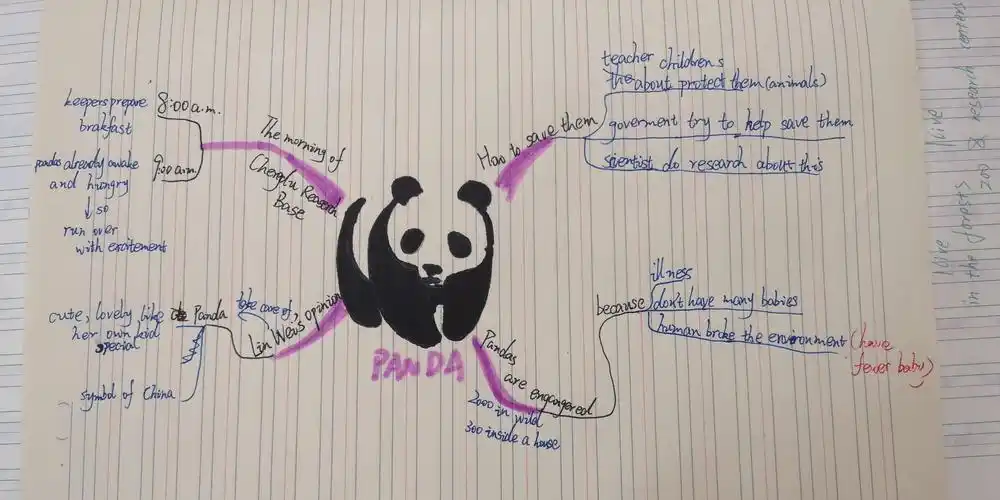 The morning of
Chengdu Research
Base
8:00 a.m.
keepers prepare
brakfast
9:00 a.m.
pandas already awake
and hungry
so
run over
with excitement
How to save them
teacher childrens
the about protect them (animals)
goverment try to help save them
scientist do research about this
Lin Wei's opinion
take care of,
Panda
cute, lovely like
her own kid
special
symbol of China
PANDA
Pandas
are engangered
2000 in wild
300 inside a house
because
illness
don't have many babies
human broke the environment (have
fewer baby)
live
in the forests
zoo & research centers